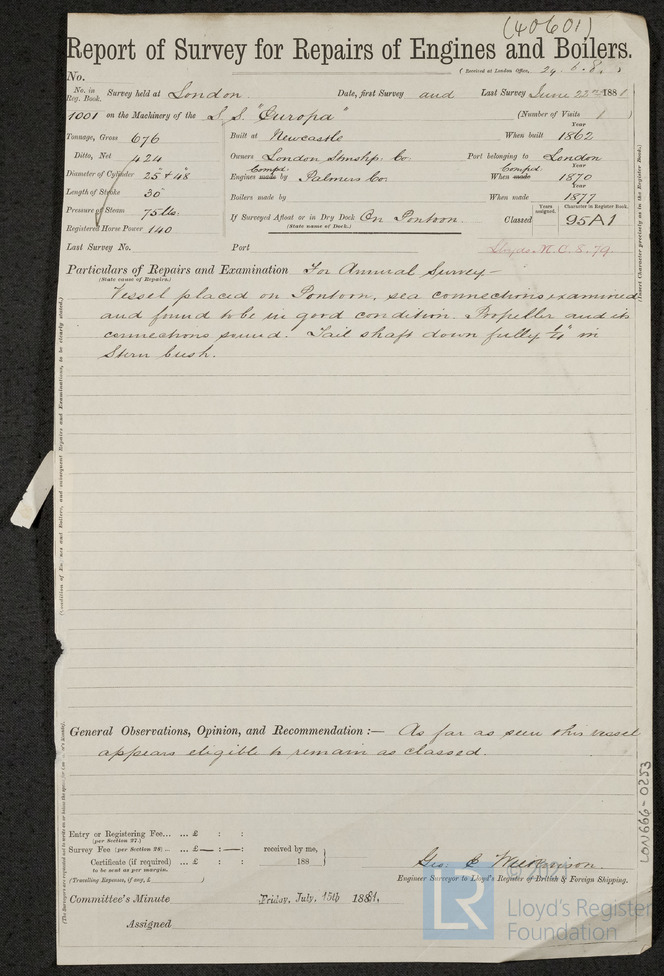 (40601)
Report of Survey for Repairs of Engines and Boilers.
No.
(Received at London Office, 24. 6. 8
No. in Reg. Book. Survey held at London Date, first Survey and Last Survey June 22nd 1881
1001 on the Machinery of the S. S. "Europa" (Number of Visits 1 )
Tonnage, Gross 676 Built at Newcastle When built Year 1862
Ditto, Net 424 Owners London Stmshp. Co. Port belonging to London
Diameter of Cylinder 25 & 48" Engines made Compd. by Palmers Co. When made Compd. Year 1870
Length of Stroke 30" Boilers made by When made Year 1877
Pressure of Steam 75 lbs. If Surveyed Afloat or in Dry Dock On Pontoon (State name of Dock.) Classed Years assigned. Character in Register Book. 95A1
Registered Horse Power 140
Last Survey No. Port Lloyds. M.C. 8. 79.
Particulars of Repairs and Examination For Annual Survey –
(State cause of Repairs.)
Vessel placed on Pontoon, sea connections examined
and found to be in good condition. Propeller and its
connections sound. Tail shaft down fully 1/4" in
Stern bush.
(Insert Character precisely as in the Register Book.)
(Condition of Engines and Boilers, and subsequent Repairs and Examinations, to be clearly stated.)
General Observations, Opinion, and Recommendation :— As far as seen this vessel
appears eligible to remain as classed.
Entry or Registering Fee... ... £ : :
(per Section 27.)
Survey Fee (per Section 28) ... ... £ — : — : received by me,
Certificate (if required) ... £ : : 188
to be sent as per margin.
(Travelling Expenses, if any, £ )
Geo. C Wilkinson.
Engineer Surveyor to Lloyd's Register of British & Foreign Shipping.
Committee's Minute Friday, July, 15th 1881,
Assigned
LON666-0253
LR
Lloyd's Register
Foundation